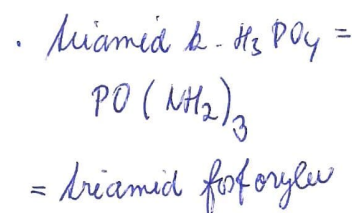 · triamid k. H₃PO₄ =
PO(NH₂)₃
= triamid fosforylu